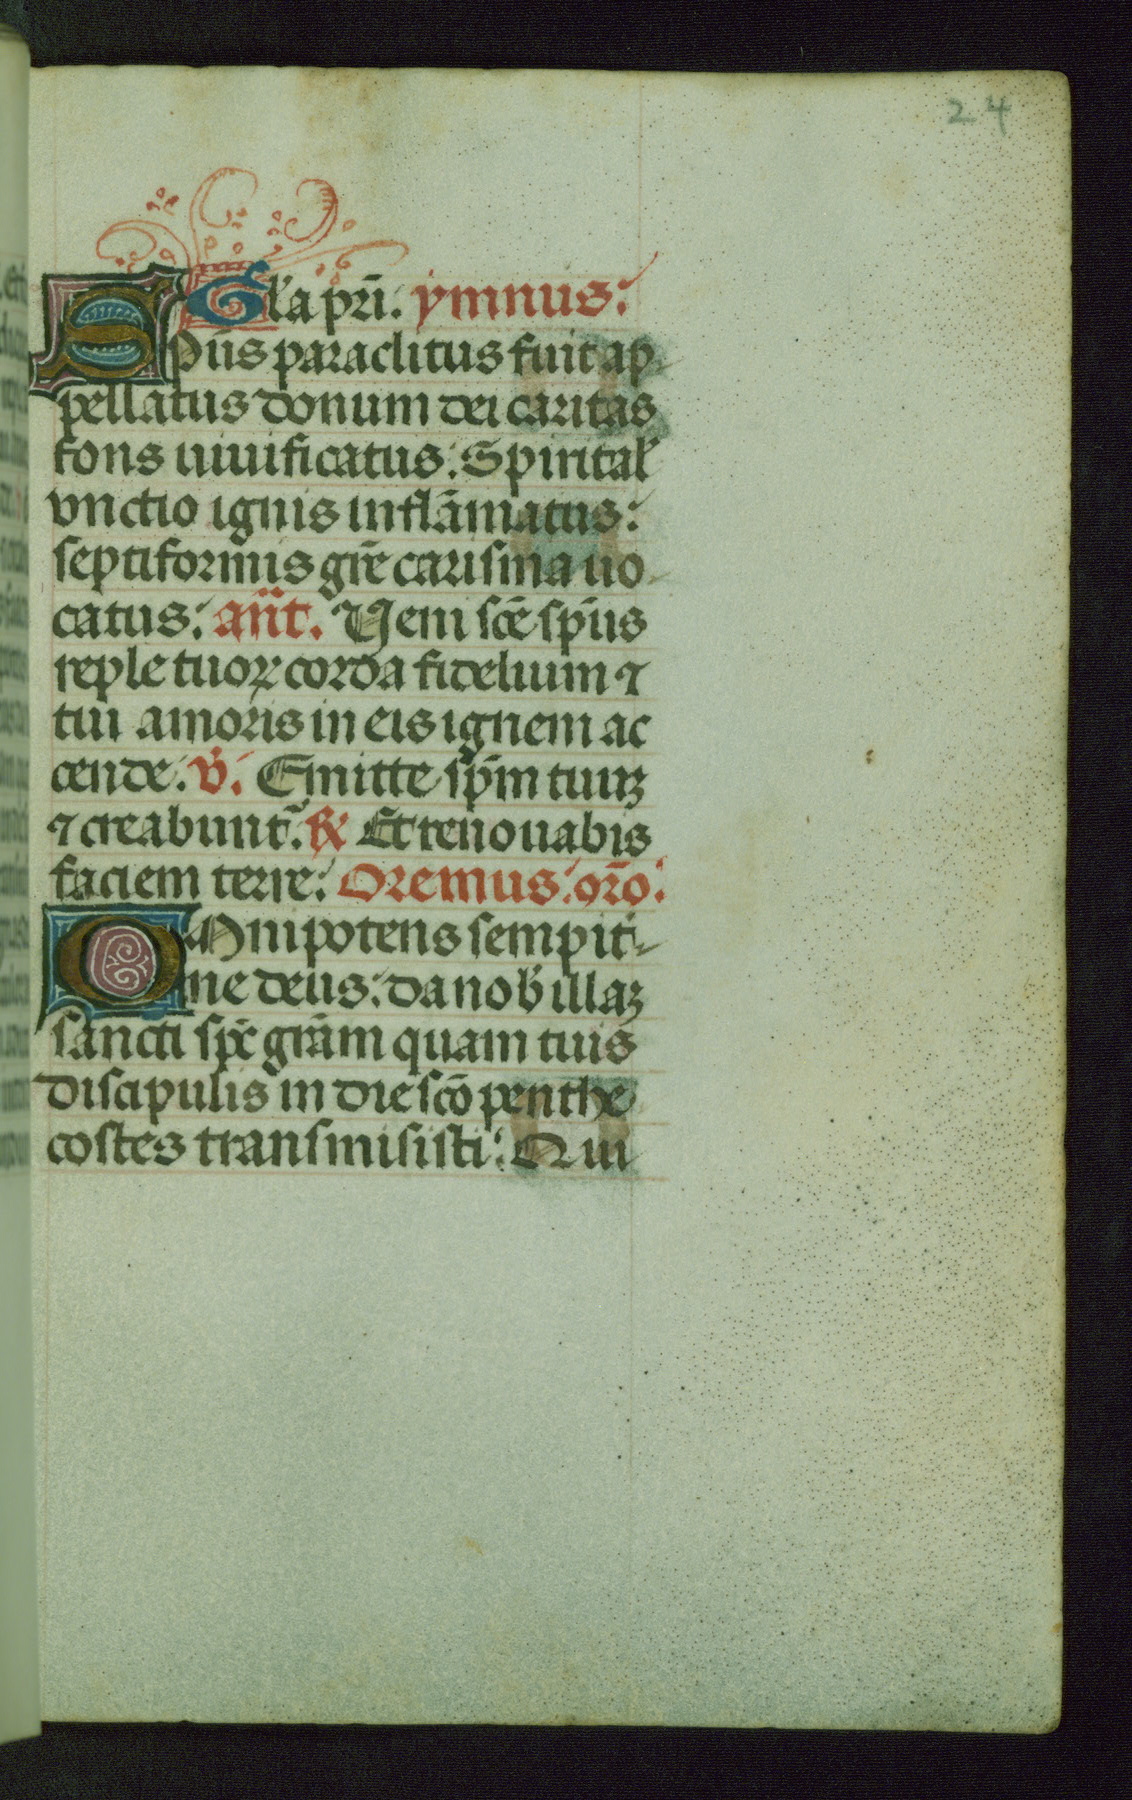 24
Gl'a pri͂. ymnus:
Sp̄us paraclitus fuit ap
pellatus donum dei caritas
fons uiuificatus: Spirital'
vnctio ignis inflām̄atus:
septiformis gr̄e carisma uo
catus: an̄t. Veni sc̄e sp̄us
reple tuoꝝ corda fidelium ⁊
tui amoris in eis ignem ac
cende: v̄. Emitte sp̄m tuuꝫ
⁊ creabunt᷑. ℟ Et renouabis
faciem terre: Oremus: or̄o:
Omnipotens sempit̄
ne deus: da nob̄ illaꝫ
sancti sp̄s gr̄am quam tuis
discipulis in die sc̄o penthe
costes transmisisti: Qui